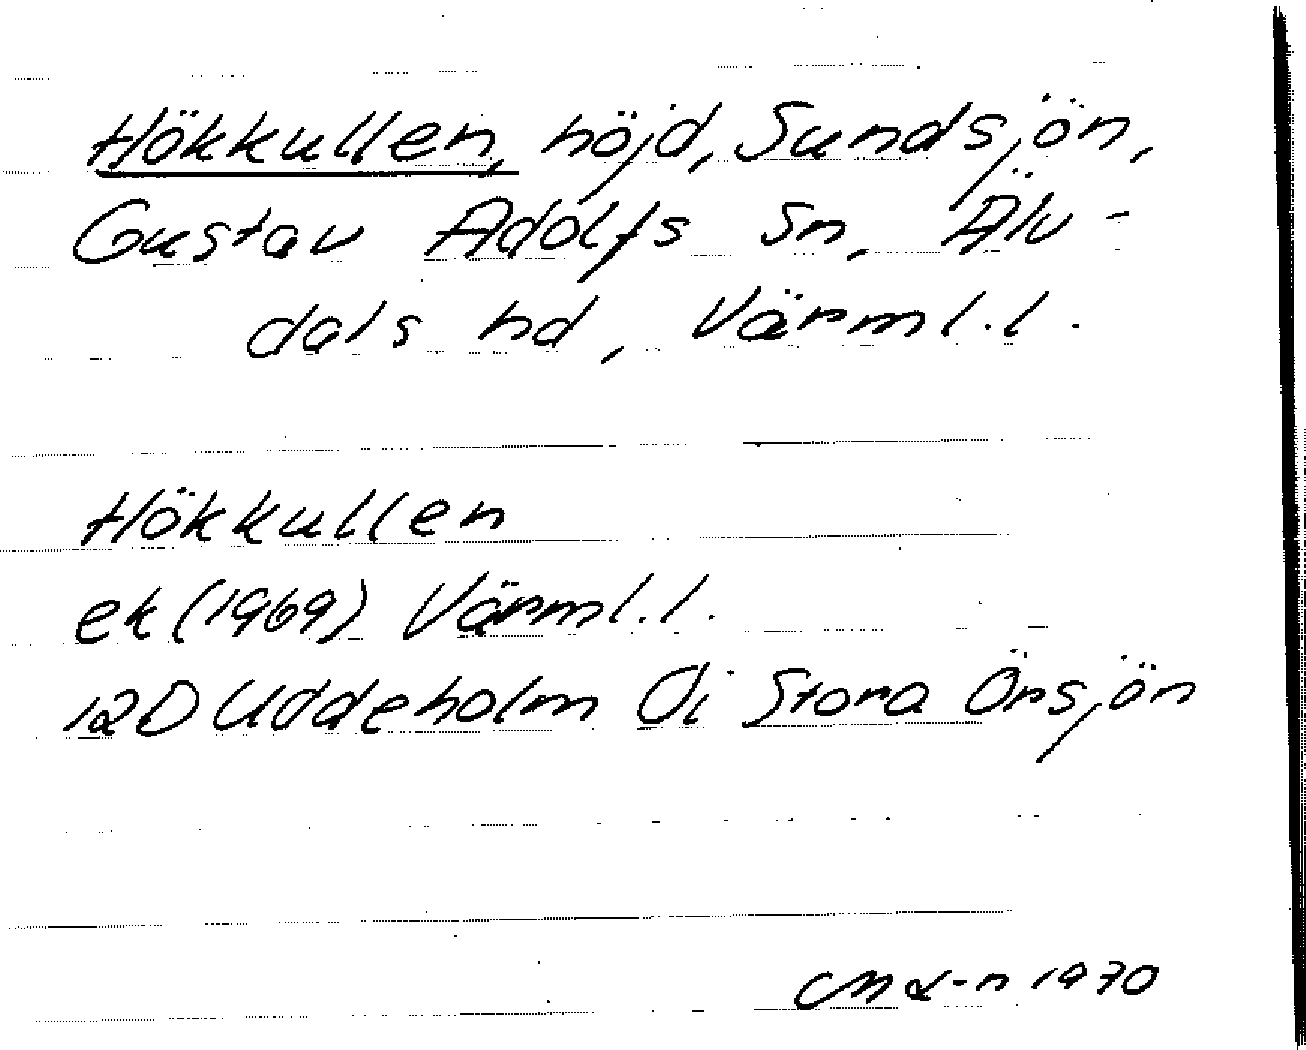 Hökkullen, höjd, Sundsjön,
Gustav Adolfs sn, Älv-
dals hd, Värml.l.
Hökkullen
ek (1969) Värml.l.
12D Uddeholm Öi Stora Örsjön
1970